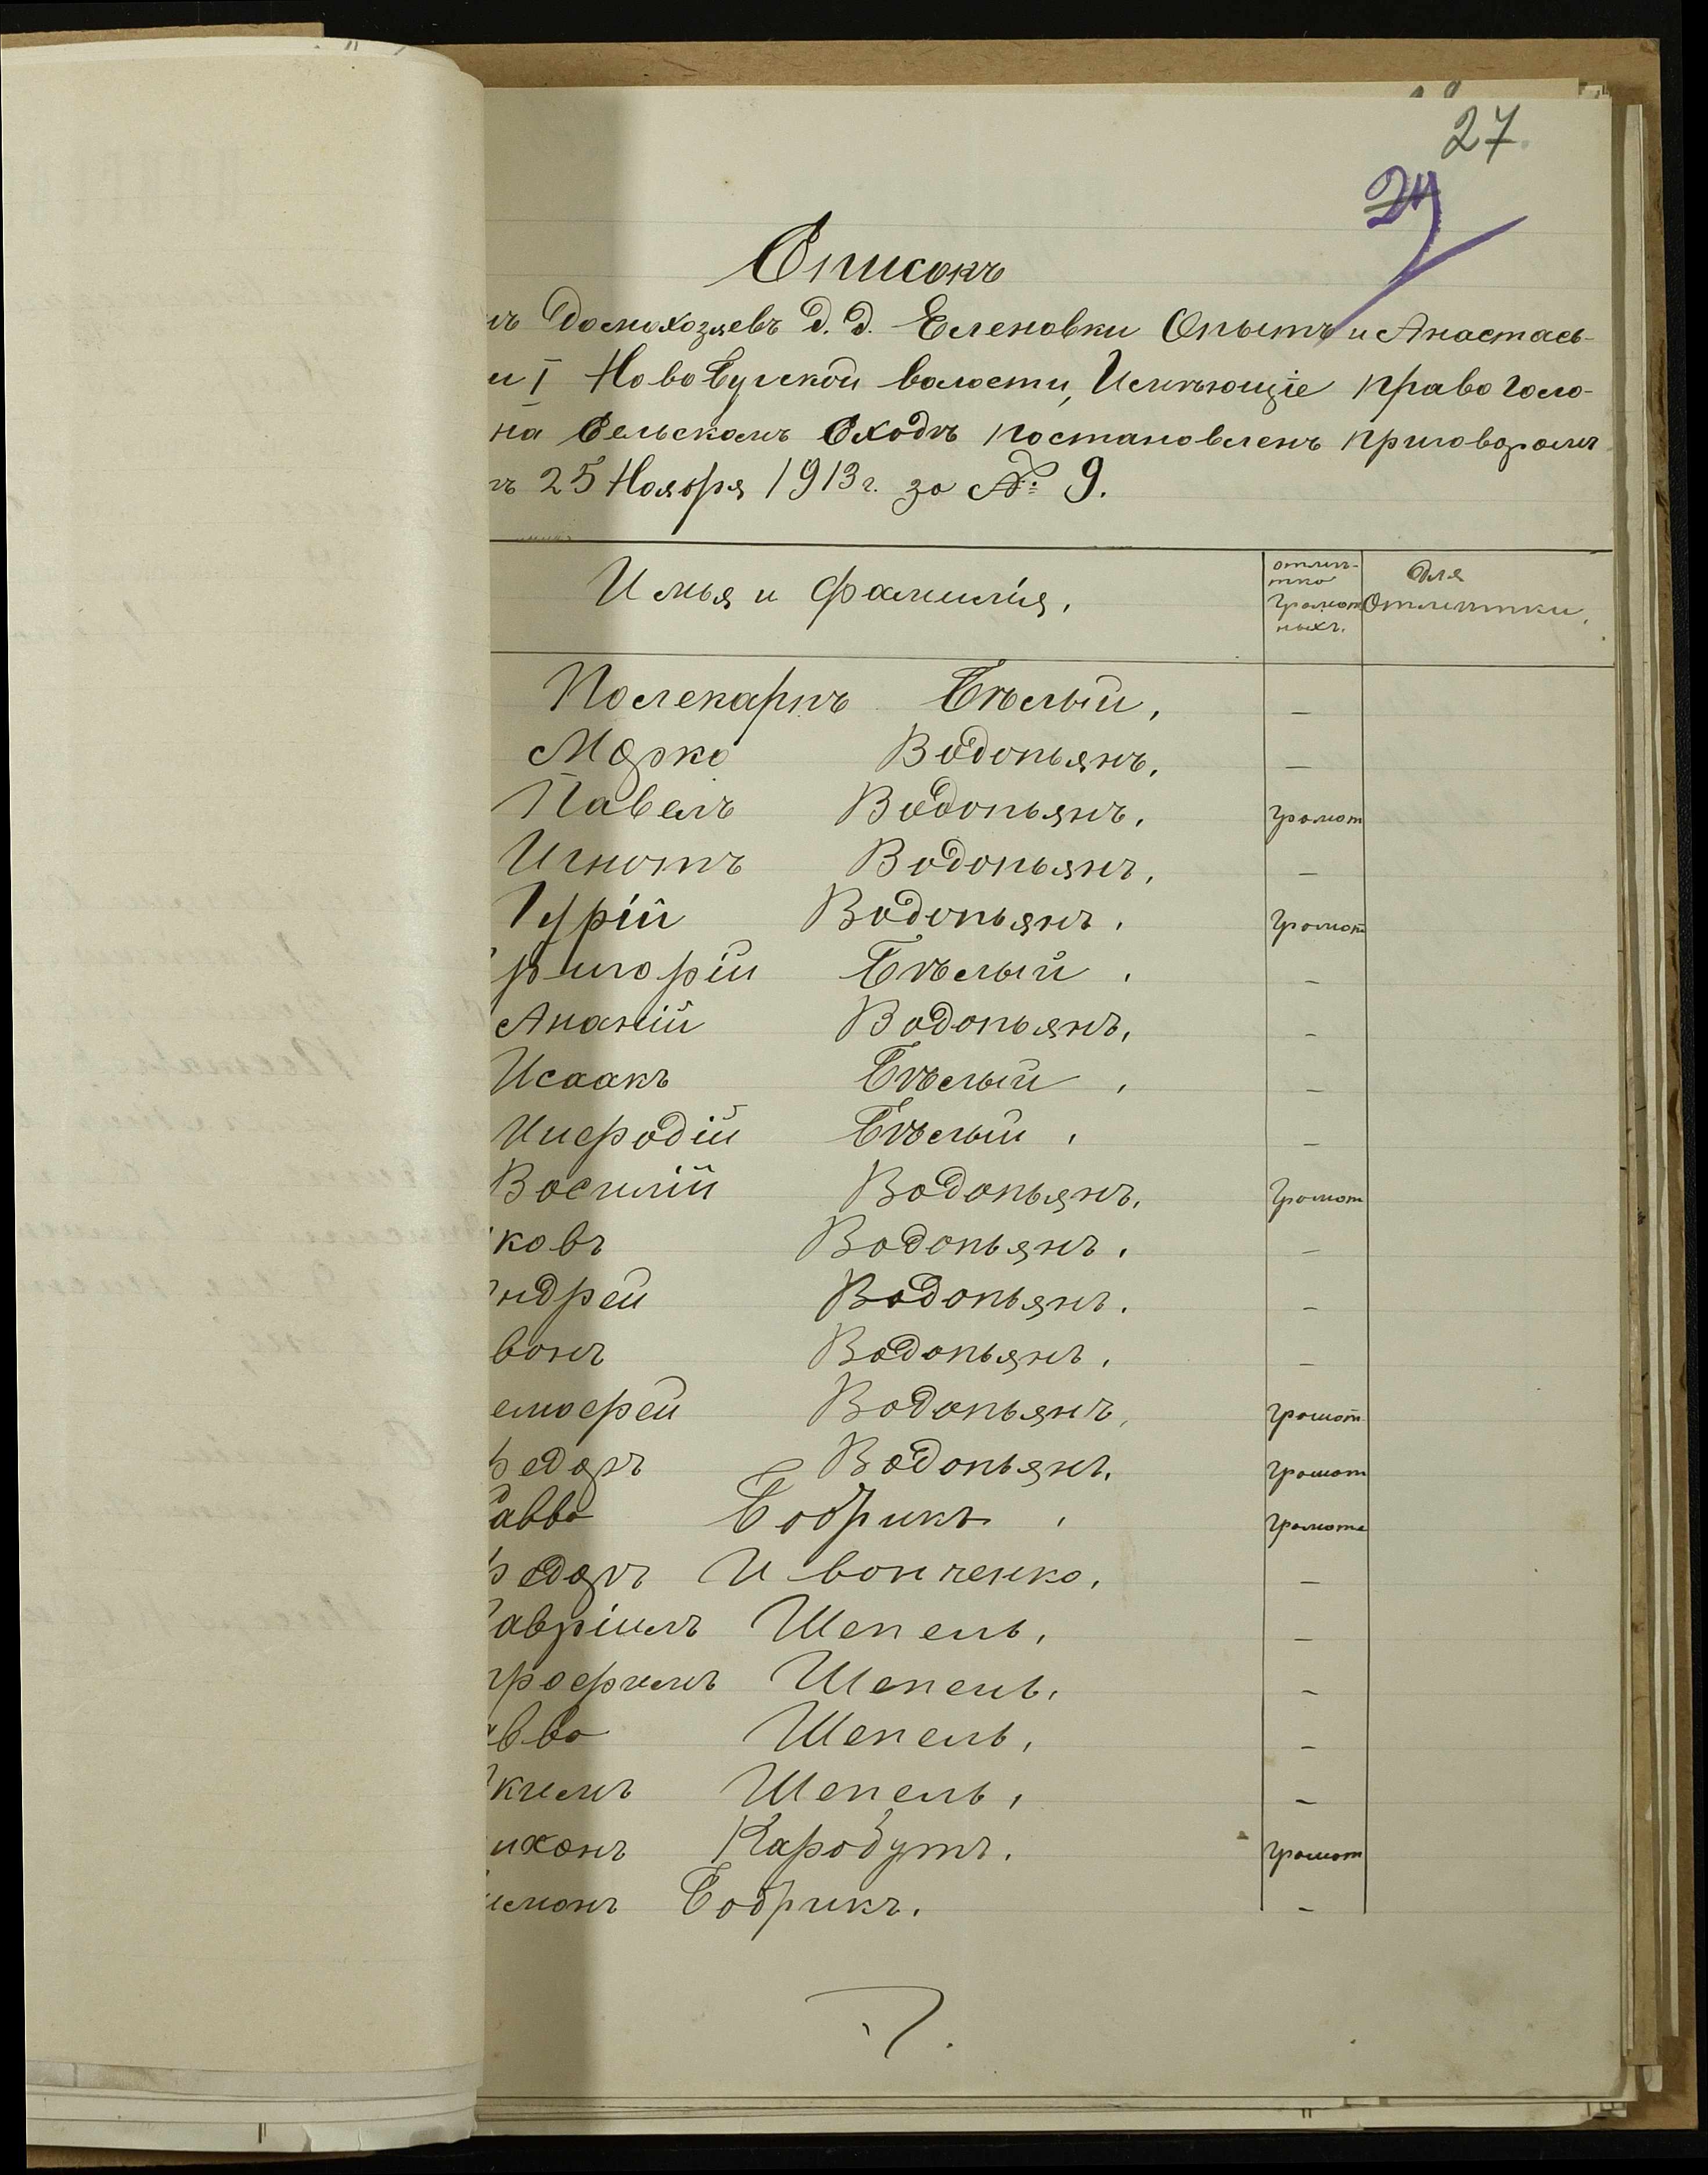 27
Списокъ
Домохозяевъ д. д. Еленовки Опытъ и Анастась-
и I Ново Бугской волости, Имѣющіе право голо-
на Сельскомъ Сходѣ постановленъ приговоромъ
25 Ноября 1913 г. за № 9.
Имья и фамилія.
отмѣтка грамотныхъ.
Для Отмѣтки.
Полекарпъ Бѣлый, –
Марко Водопьянъ, –
Павелъ Водопьянъ, грамот
Игнатъ Водопьянъ, –
Гурій Водопьянъ, грамот
ригорій Бѣлый, –
Ананій Водопьянъ, –
Исаакъ Бѣлый, –
Ииродій Бѣлый, –
Василій Водопьянъ, грамот
ковъ Водопьянъ, –
ндрей Водопьянъ, –
ванъ Водопьянъ, –
имофей Водопьянъ, грамот
едоръ Водопьянъ, грамот
авва Бобрикъ, грамотн
едоръ Иванченко, –
авріилъ Шепель, –
рофимъ Шепель, –
авва Шепель, –
кимъ Шепель, –
ихонъ Карабутъ, грамот
имонъ Бобрикъ. –